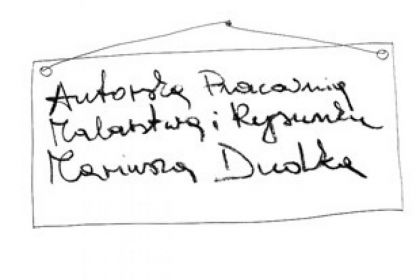 Autorska Pracownia
Malarstwa i Rysunku
Mariusza Drodka